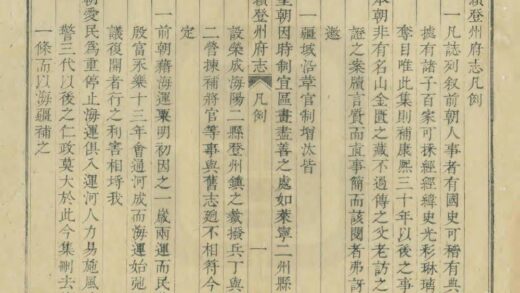 續登州府志凡例
一凡誌列叙前朝人事者有國史可稽有典
據有諸子百家可採經經緯史光彩琳瑯
奪目唯此集則補康熙三十年以後之事
本朝非有名山金匱之藏不過傳之文老訪之
誌之案牘言質而直事簡而該閱者弗訝
邈
一疆域沿革官制增汰皆
皇朝因時制宜區畫盡善之處如萊寧二州縣
設榮成海陽二縣登州鎮之裁撥兵丁與
登州府志
凡例
一
二營揀補將官等事與舊志迥不相符今
定
一前朝藉海運粟明初因之一歲兩運而民
殷富永樂十三年會通河成而海運始弛
議復開者行之利害相埒我
朝愛民為重停止海運俱入運河人力易施風
警三代以後之仁政莫大於此今集刪去
一條而以海疆補之